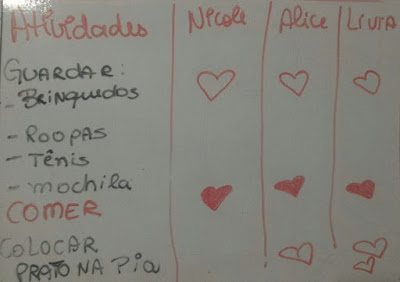 Atividades Nicole Alice Livia
GUARDAR:
- BRINQUEDOS
- ROOPAS
- TÊNIS
- mochila
COMER
COLOCAR
PRATO NA PIA